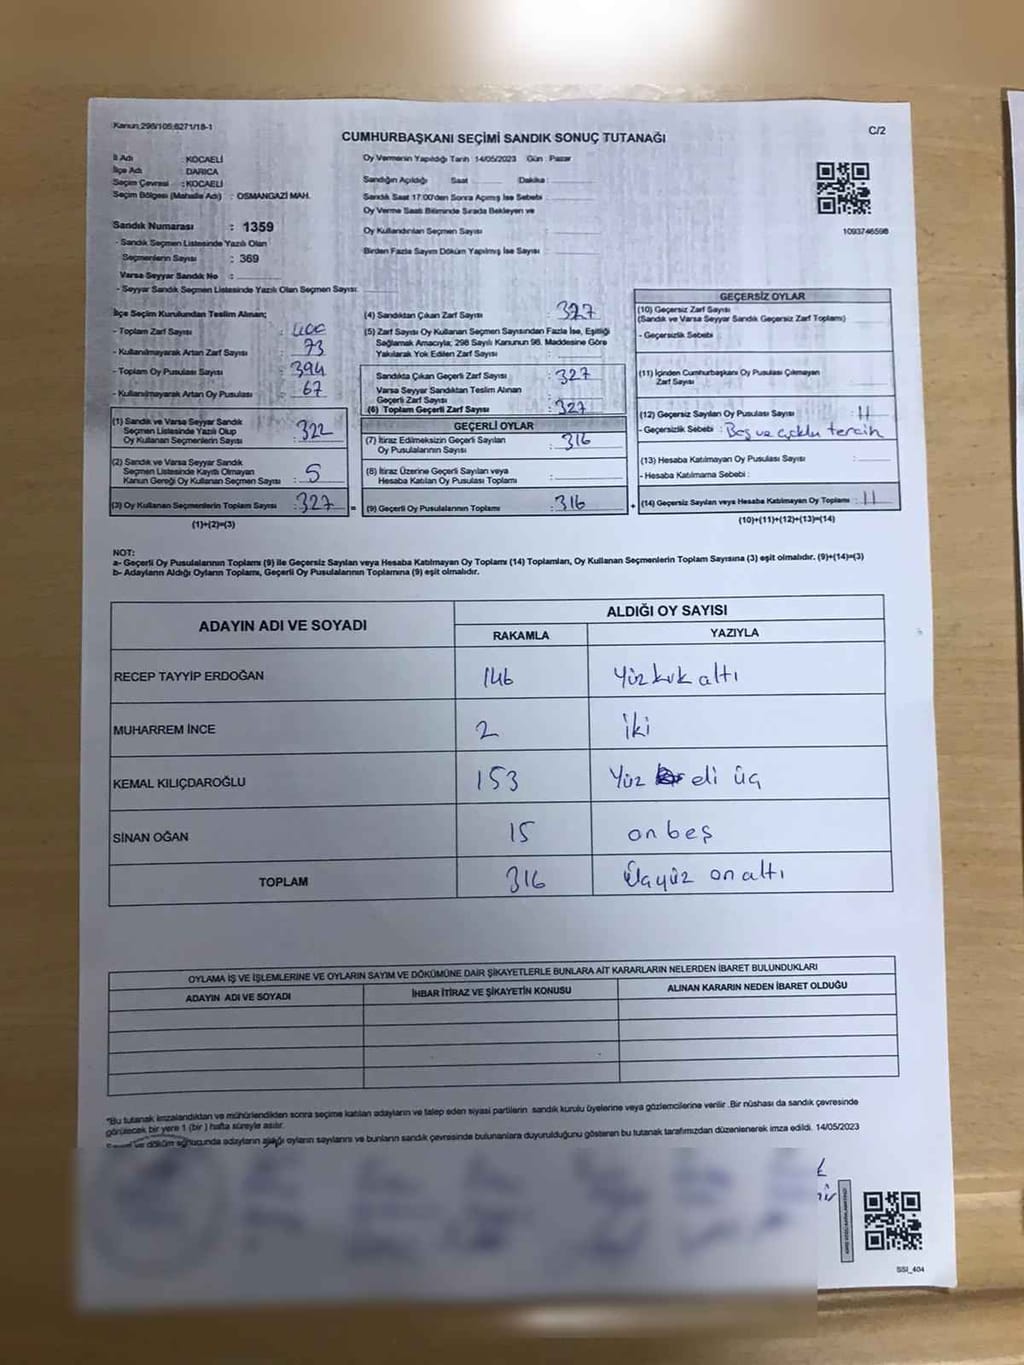 Kanun:298/105;6271/18-1
CUMHURBAŞKANI SEÇİMİ SANDIK SONUÇ TUTANAĞI
C/2
İl Adı : KOCAELİ
İlçe Adı : DARICA
Seçim Çevresi : KOCAELİ
Seçim Bölgesi (Mahalle Adı) : OSMANGAZİ MAH.
Sandık Numarası : 1359
- Sandık Seçmen Listesinde Yazılı Olan
Seçmenlerin Sayısı : 369
Varsa Seyyar Sandık No :
- Seyyar Sandık Seçmen Listesinde Yazılı Olan Seçmen Sayısı:
Oy Vermenin Yapıldığı Tarih 14/05/2023 Gün : Pazar
Sandığın Açıldığı Saat Dakika :
Sandık Saat 17:00'den Sonra Açımış İse Sebebi :
Oy Verme Saati Bitiminde Sırada Bekleyen ve
Oy Kullandırılan Seçmen Sayısı :
Birden Fazla Sayım Döküm Yapılmış İse Sayısı :
1093746598
İlçe Seçim Kurulundan Teslim Alınan;
- Toplam Zarf Sayısı : 400
- Kullanılmayarak Artan Zarf Sayısı : 73
- Toplam Oy Pusulası Sayısı : 394
- Kullanılmayarak Artan Oy Pusulası : 67
(1) Sandık ve Varsa Seyyar Sandık
Seçmen Listesinde Yazılı Olup
Oy Kullanan Seçmenlerin Sayısı : 322
(2) Sandık ve Varsa Seyyar Sandık
Seçmen Listesinde Kayıtlı Olmayan
Kanun Gereği Oy Kullanan Seçmen Sayısı : 5
(3) Oy Kullanan Seçmenlerin Toplam Sayısı : 327 =
(1)+(2)=(3)
(4) Sandıktan Çıkan Zarf Sayısı : 327
(5) Zarf Sayısı Oy Kullanan Seçmen Sayısından Fazla İse, Eşitliği
Sağlamak Amacıyla; 298 Sayılı Kanunun 98. Maddesine Göre
Yakılarak Yok Edilen Zarf Sayısı :
Sandıkta Çıkan Geçerli Zarf Sayısı : 327
Varsa Seyyar Sandıktan Teslim Alınan
Geçerli Zarf Sayısı :
(6) Toplam Geçerli Zarf Sayısı : 327
GEÇERLİ OYLAR
(7) İtiraz Edilmeksizin Geçerli Sayılan
Oy Pusulalarının Sayısı : 316
(8) İtiraz Üzerine Geçerli Sayılan veya
Hesaba Katılan Oy Pusulası Toplamı :
(9) Geçerli Oy Pusulalarının Toplamı : 316 +
GEÇERSİZ OYLAR
(10) Geçersiz Zarf Sayısı
(Sandık ve Varsa Seyyar Sandık Geçersiz Zarf Toplamı)
- Geçersizlik Sebebi :
(11) İçinden Cumhurbaşkanı Oy Pusulası Çıkmayan
Zarf Sayısı :
(12) Geçersiz Sayılan Oy Pusulası Sayısı : 11
- Geçersizlik Sebebi : Boş ve çoklu tercih
(13) Hesaba Katılmayan Oy Pusulası Sayısı :
- Hesaba Katılmama Sebebi :
(14) Geçersiz Sayılan veya Hesaba Katılmayan Oy Toplamı : 11
(10)+(11)+(12)+(13)=(14)
NOT:
a- Geçerli Oy Pusulalarının Toplamı (9) ile Geçersiz Sayılan veya Hesaba Katılmayan Oy Toplamı (14) Toplamları, Oy Kullanan Seçmenlerin Toplam Sayısına (3) eşit olmalıdır. (9)+(14)=(3)
b- Adayların Aldığı Oyların Toplamı, Geçerli Oy Pusulalarının Toplamına (9) eşit olmalıdır.
ADAYIN ADI VE SOYADI ALDIĞI OY SAYISI
RAKAMLA YAZIYLA
RECEP TAYYİP ERDOĞAN 146 Yüz kırk altı
MUHARREM İNCE 2 iki
KEMAL KILIÇDAROĞLU 153 Yüz eli üç
SİNAN OĞAN 15 on beş
TOPLAM 316 Üçyüz on altı
OYLAMA İŞ VE İŞLEMLERİNE VE OYLARIN SAYIM VE DÖKÜMÜNE DAİR ŞİKAYETLERLE BUNLARA AİT KARARLARIN NELERDEN İBARET BULUNDUKLARI
ADAYIN ADI VE SOYADI İHBAR İTİRAZ VE ŞİKAYETİN KONUSU ALINAN KARARIN NEDEN İBARET OLDUĞU
"Bu tutanak imzalandıktan ve mühürlendikten sonra seçime katılan adayların ve talep eden siyasi partilerin sandık kurulu üyelerine veya gözlemcilerine verilir .Bir nüshası da sandık çevresinde
görülecek bir yere 1 (bir ) hafta süreyle asılır.
ve döküm sonucunda adayların aldığı oyların sayılarını ve bunların sandık çevresinde bulunanlara duyurulduğunu gösteren bu tutanak tarafımızdan düzenlenerek imza edildi. 14/05/2023
SSI_404